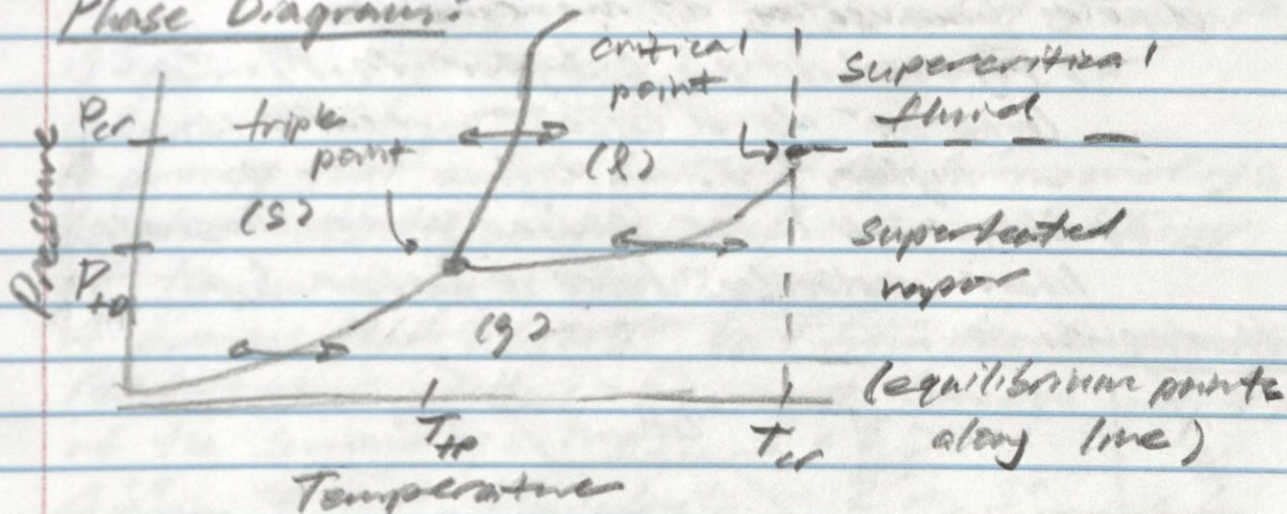 Phase Diagram:
critical
point
supercritical
fluid
Pressure
Pcr
triple
point
(s)
(l)
Ptp
superheated
vapor
(g)
(equilibrium points
along line)
Ttp
Tcr
Temperature